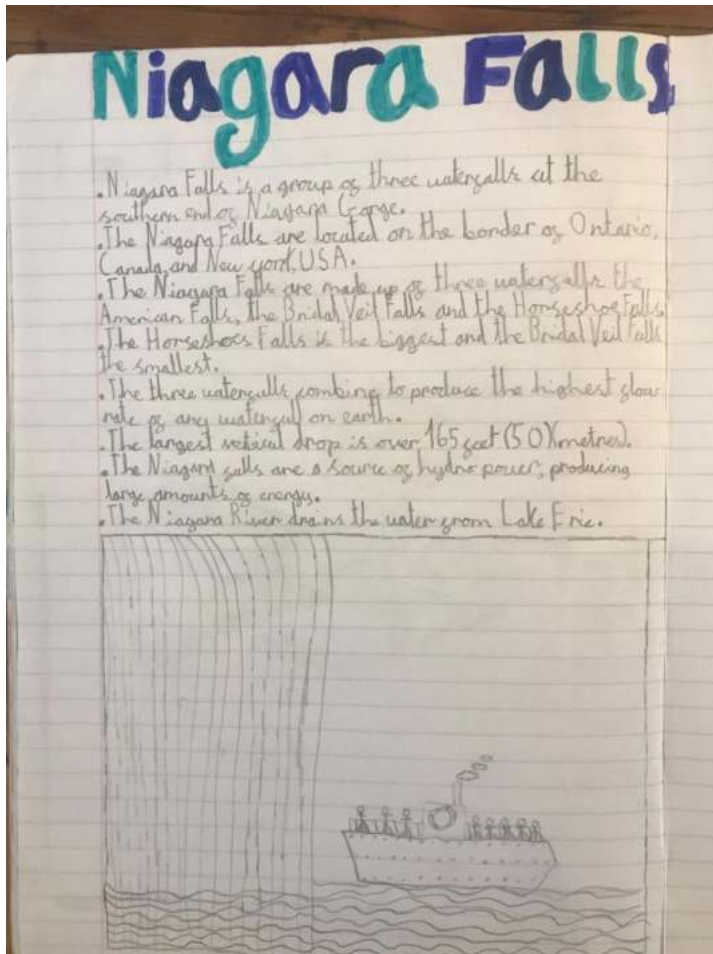 Niagara Falls
. Niagara Falls is a group of three waterfalls at the
southern end of Niagara Gorge.
. The Niagara Falls are located on the border of Ontario,
Canada, and New york, USA.
. The Niagara Falls are made up of three waterfalls the
American Falls, the Bridal Veil Falls and the Horseshoe Falls.
. The Horseshoes Falls is the biggest and the Bridal Veil Falls
the smallest.
. The three waterfalls, combine to produce the highest flow
rate of any waterfall on earth.
. The largest vertical drop is over 165 feet (50 metres).
. The Niagara falls are a source of hydro power, producing
large amounts of energy.
. The Niagara River drains the water from Lake Erie.